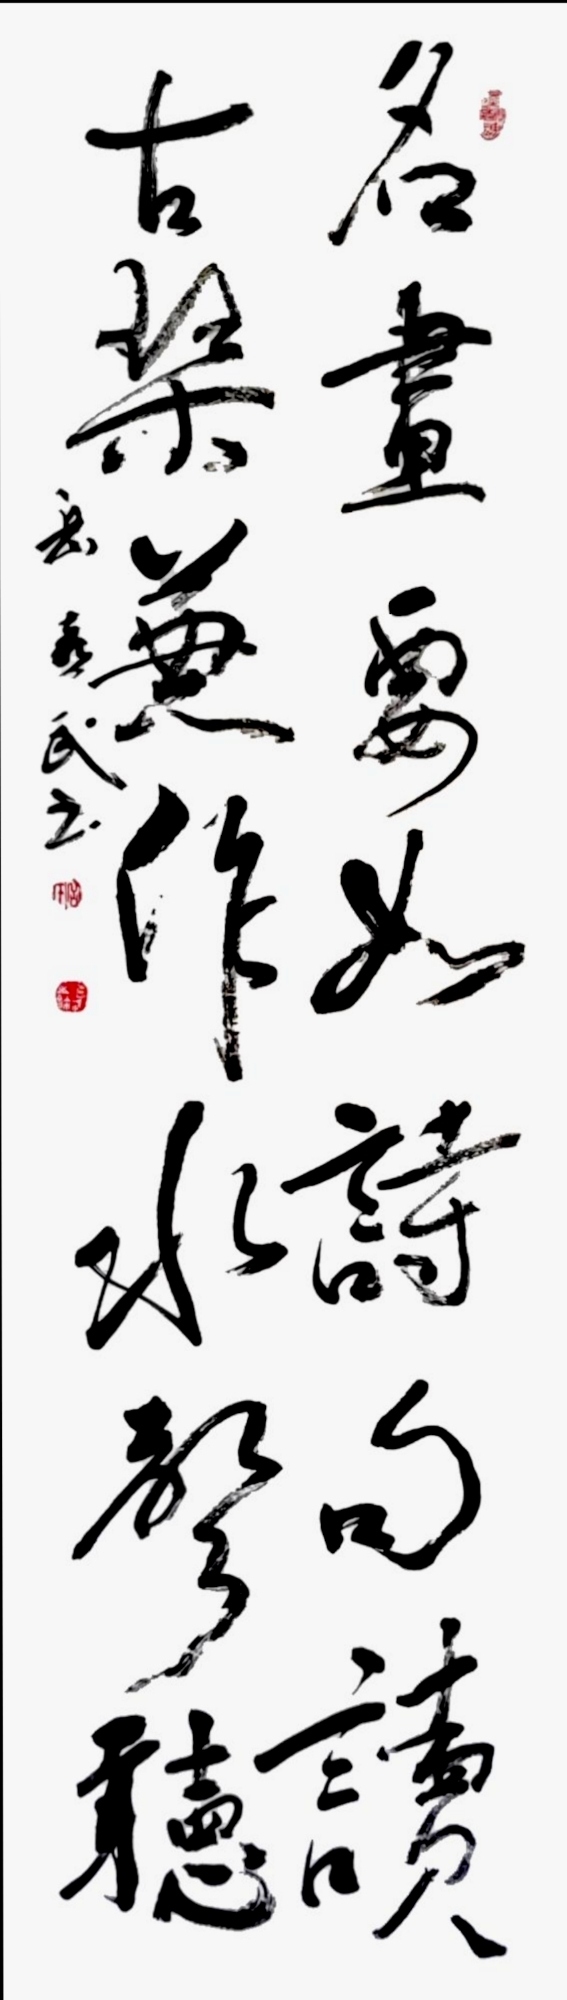 名畫要如詩句讀
古琴兼作水聲聽
岳嘉民書